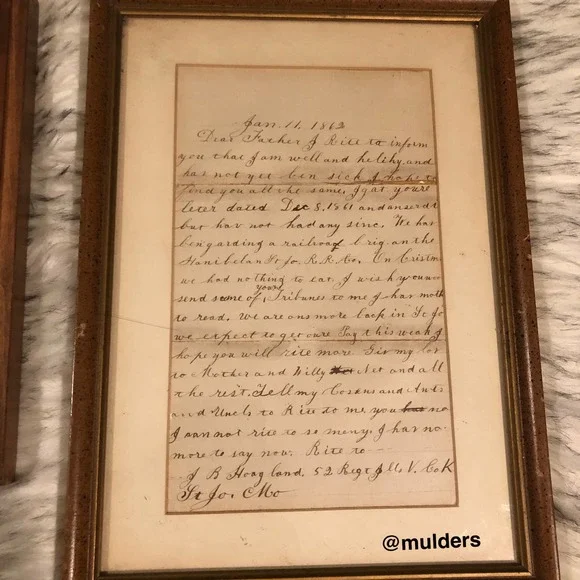 Jan. 11, 1862
Dear Father I Rite to inform
you that I am well and helthy and
has not yet ben sick I hope to
find you all the same. I gat youre
leter dated Dec 8, 1861 and anserd t
but hav not had any sinc. We hav
ben garding a railroad brig. on the
Hanibelan St Jo. R. R. Co. On Cristm
we had nothing to eat. I wish you wo
send some of your Tribunes to me I hav noth
to read. We are ons more back in St Jo
we expect to get oure Pay this weak I
hope you will rite more Giv my lov
to Mother and Willy Net and all
the rest. Tell my Cosens and Ants
and Uncls to Rite to me you no
I can not rite to so meny. I hav no
more to say now. Rite to
J B Hoagland. 52 Regt Ills. V. Co K
St Jo. Mo
@mulders